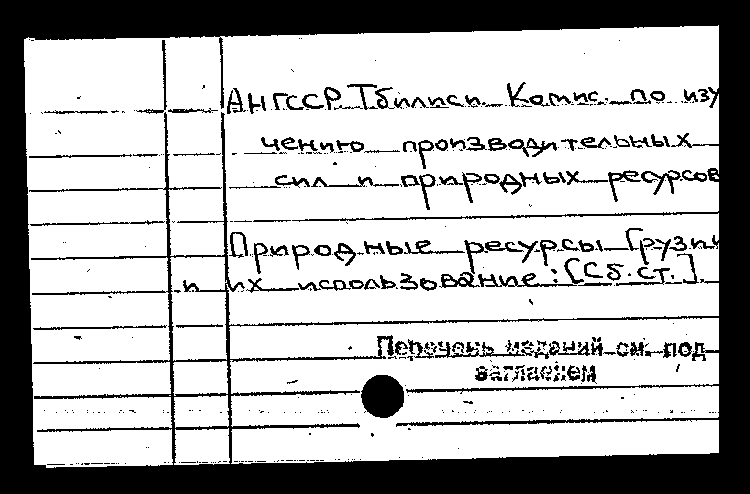 АНГССР Тбилиси Комис. по изу
чению производительных
сил и природных ресурсов
Природные ресурсы Грузии
и их использование: [Сб. ст.].
Перечень изданий см. под
заглавием